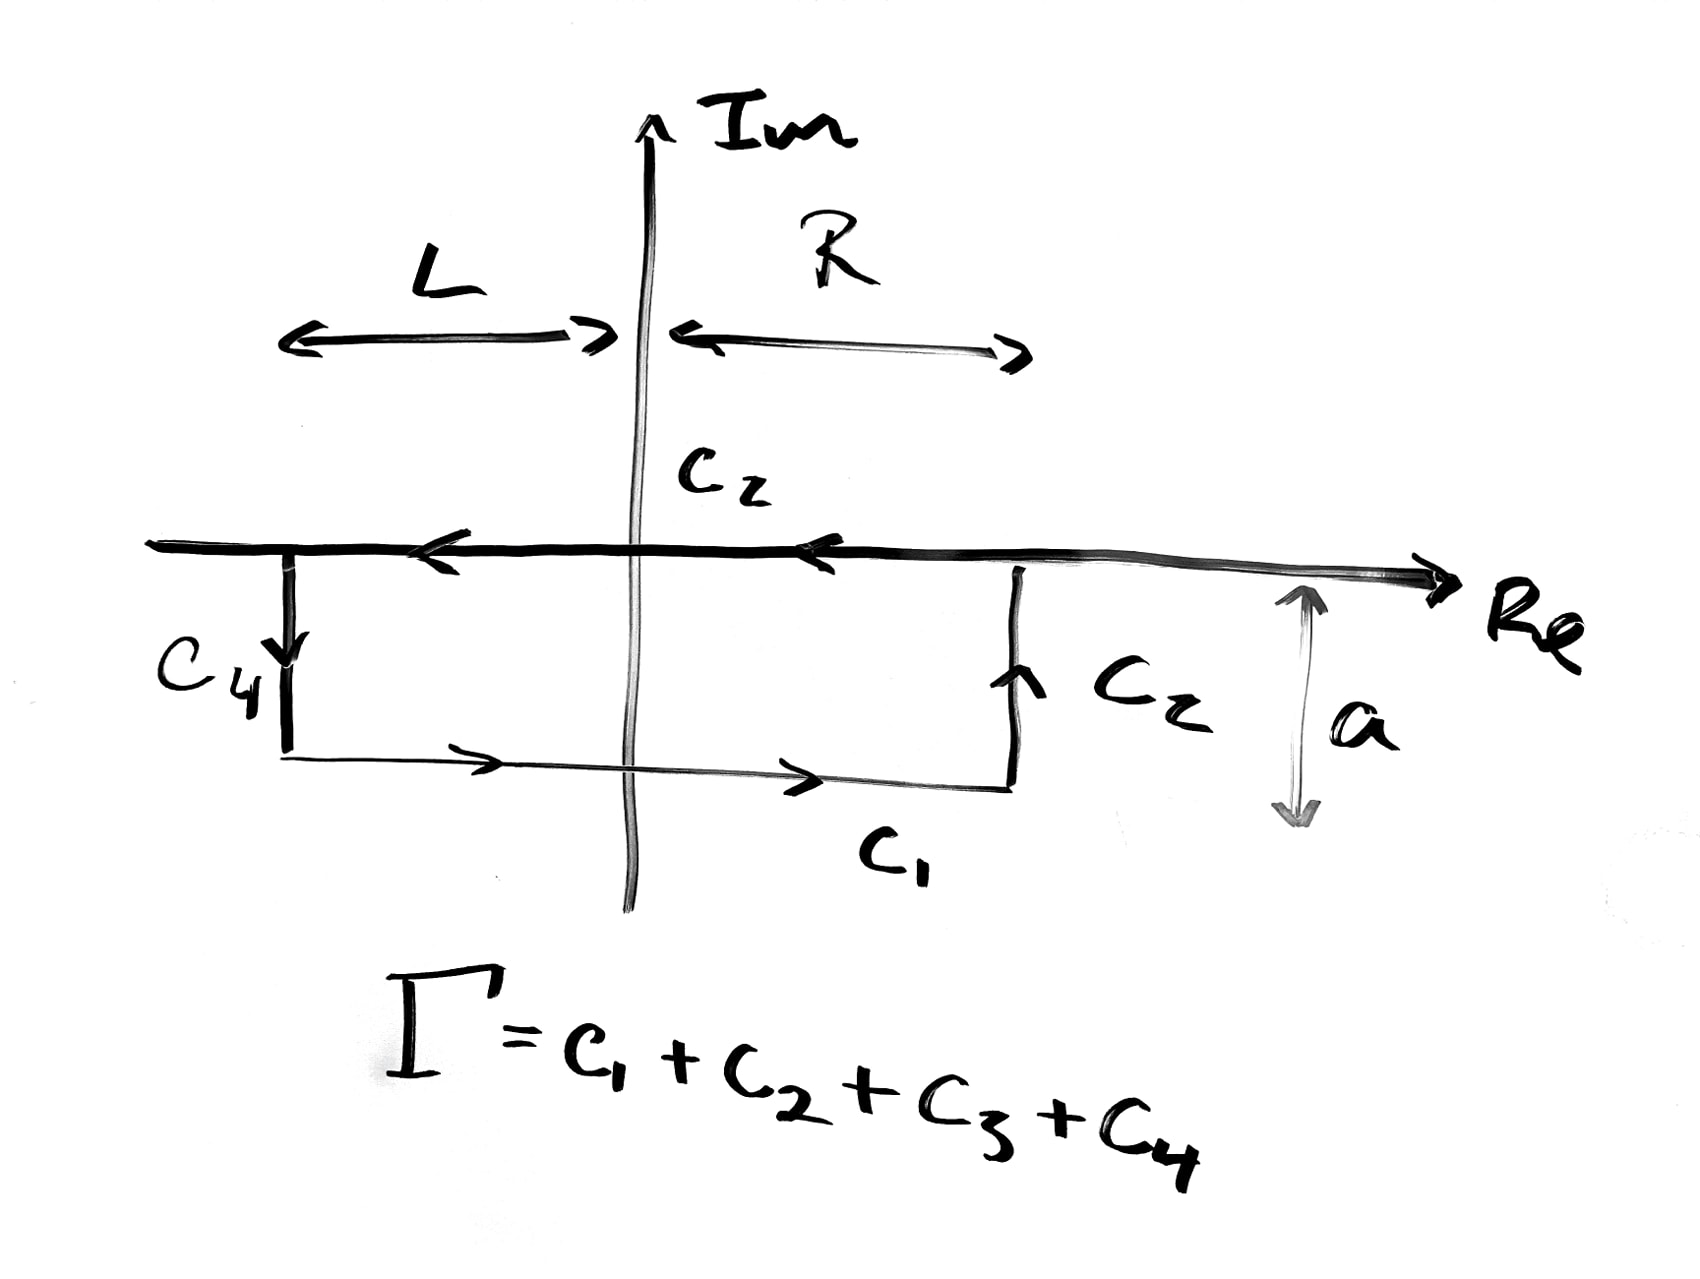 Im
L
R
C₂
Re
C₄
C₂
a
C₁
Γ = C₁ + C₂ + C₃ + C₄